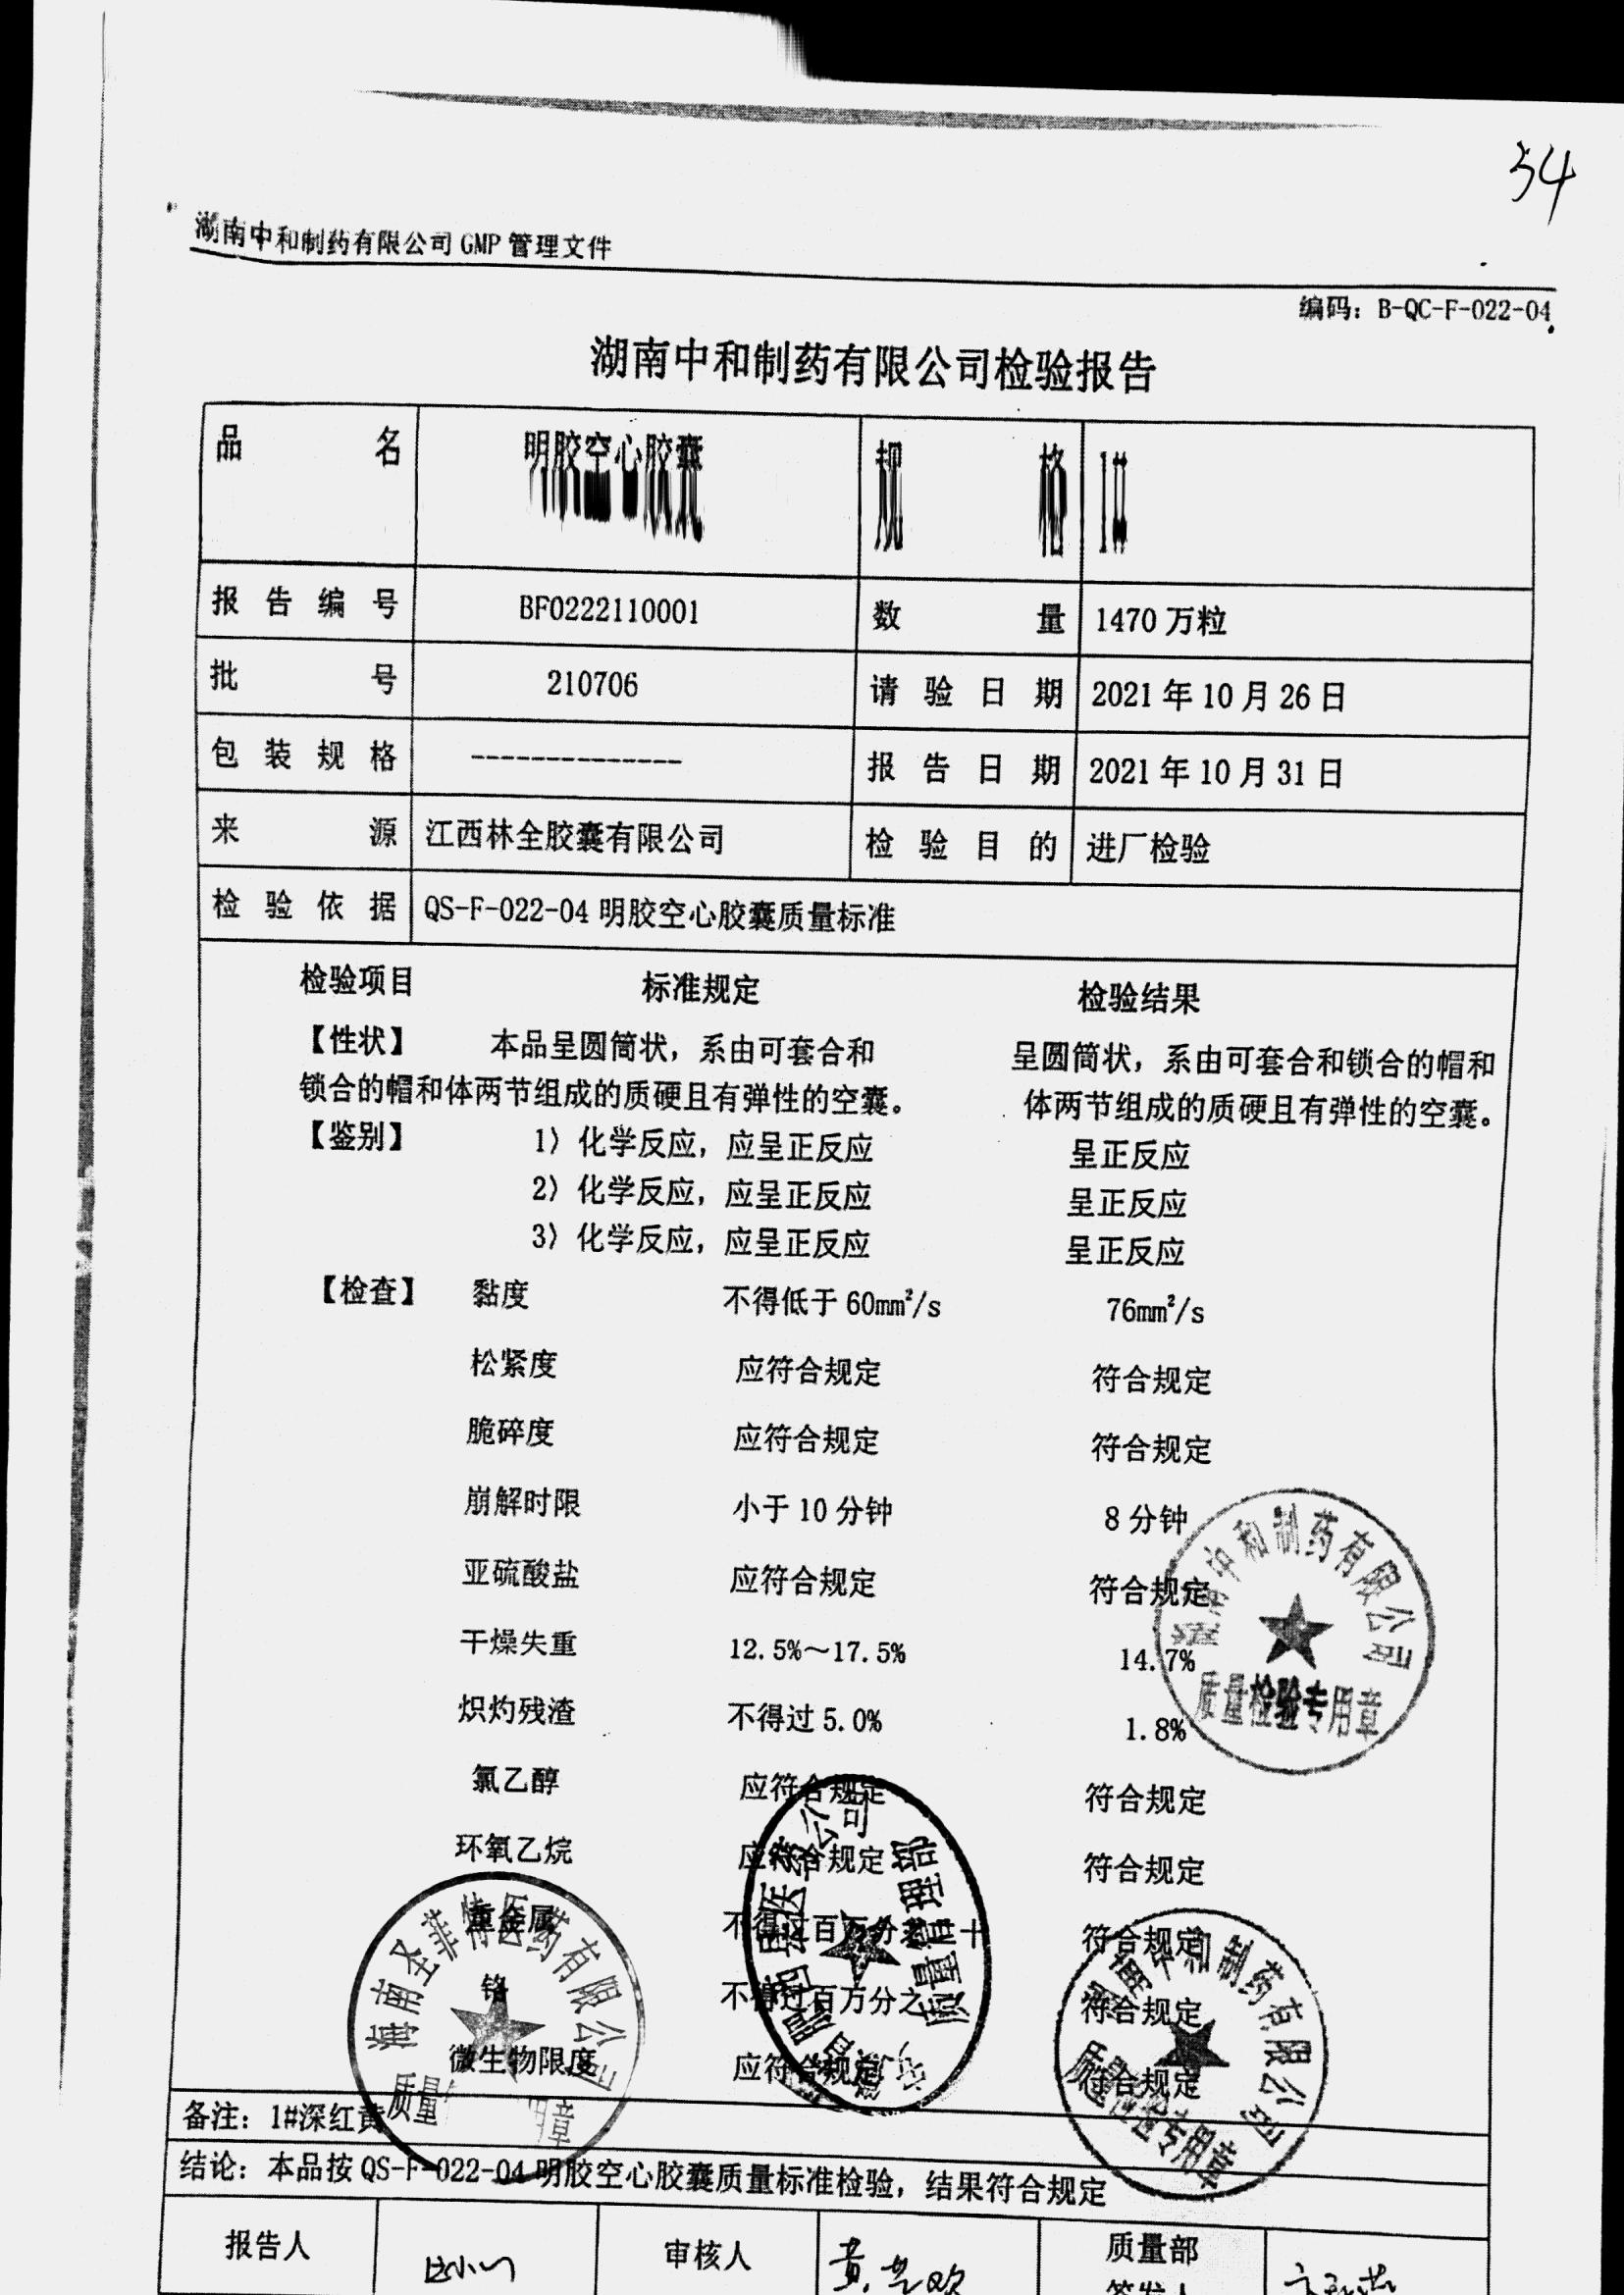 34
湖南中和制药有限公司 GMP 管理文件
编码：B-QC-F-022-04
湖南中和制药有限公司检验报告
品名 明胶空心胶囊 规格 1#
报告编号 BF0222110001 数量 1470 万粒
批号 210706 请验日期 2021 年 10 月 26 日
包装规格 -------------- 报告日期 2021 年 10 月 31 日
来源 江西林全胶囊有限公司 检验目的 进厂检验
检验依据 QS-F-022-04 明胶空心胶囊质量标准
检验项目 标准规定 检验结果
【性状】 本品呈圆筒状，系由可套合和 呈圆筒状，系由可套合和锁合的帽和
锁合的帽和体两节组成的质硬且有弹性的空囊。 体两节组成的质硬且有弹性的空囊。
【鉴别】 1）化学反应，应呈正反应 呈正反应
2）化学反应，应呈正反应 呈正反应
3）化学反应，应呈正反应 呈正反应
【检查】 黏度 不得低于 60mm²/s 76mm²/s
松紧度 应符合规定 符合规定
脆碎度 应符合规定 符合规定
崩解时限 小于 10 分钟 8 分钟
亚硫酸盐 应符合规定 符合规定
干燥失重 12.5%～17.5% 14.7%
炽灼残渣 不得过 5.0% 1.8%
氯乙醇 应符合规定 符合规定
环氧乙烷 应符合规定 符合规定
重金属 不得过百万分之十 符合规定
铬 不得过百万分之 符合规定
微生物限度 应符合规定 符合规定
湖南中和制药有限公司
质量检验专用章
海南圣菲特医药有限公司
质量 用章
医药 公司
质量管理部
湖南中和制药有限公司
质量检验专用章
备注：1#深红黄
结论：本品按 QS-F-022-04 明胶空心胶囊质量标准检验，结果符合规定
报告人 审核人 质量部
签发人